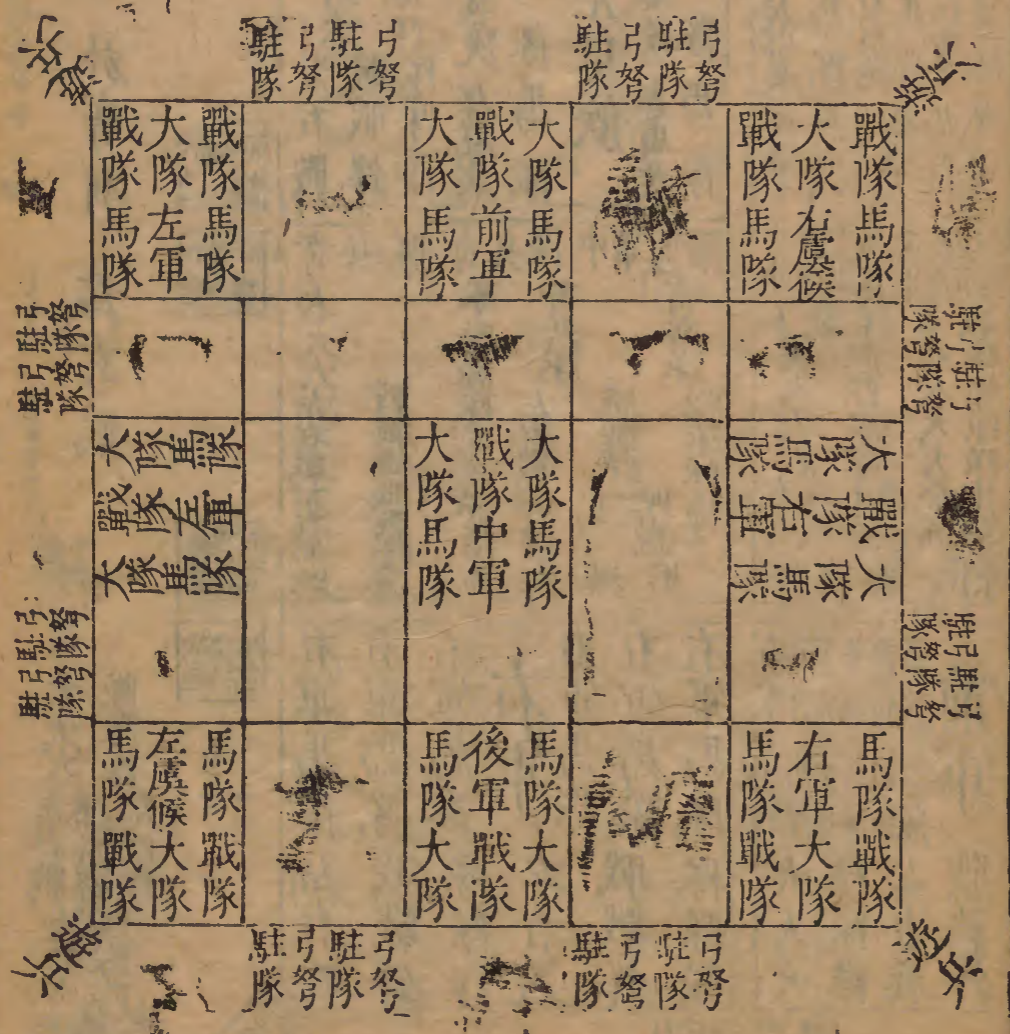 遊兵
弓弩
駐隊
弓弩
駐隊
弓弩
駐隊
弓弩
駐隊
遊兵
戰隊馬隊
大隊右虞候
戰隊馬隊
大隊馬隊
戰隊前軍
大隊馬隊
戰隊馬隊
大隊左軍
戰隊馬隊
駐隊
弓弩
駐隊
弓弩
弓弩
駐隊
弓弩
駐隊
大隊馬隊
戰隊右軍
大隊馬隊
大隊馬隊
戰隊中軍
大隊馬隊
大隊馬隊
戰隊左軍
大隊馬隊
駐隊
弓弩
駐隊
弓弩
弓弩
駐隊
弓弩
駐隊
馬隊戰隊
右軍大隊
馬隊戰隊
馬隊大隊
後軍戰隊
馬隊大隊
馬隊戰隊
左虞候大隊
馬隊戰隊
遊兵
弓弩
駐隊
弓弩
駐隊
弓弩
駐隊
弓弩
駐隊
遊兵